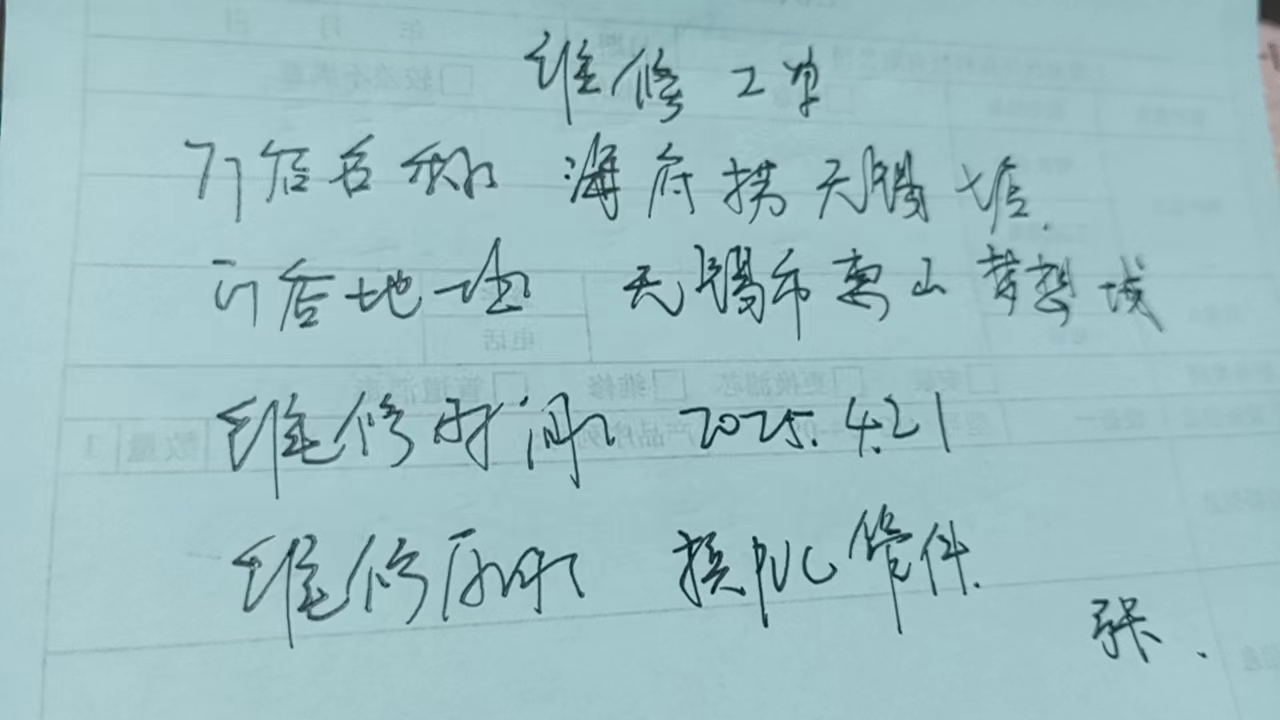 维修工单
门店名称 海府捞无锡店
门店地址 无锡市惠山梦想城
维修时间 2025.4.21
维修原因 换PVC管件
张.